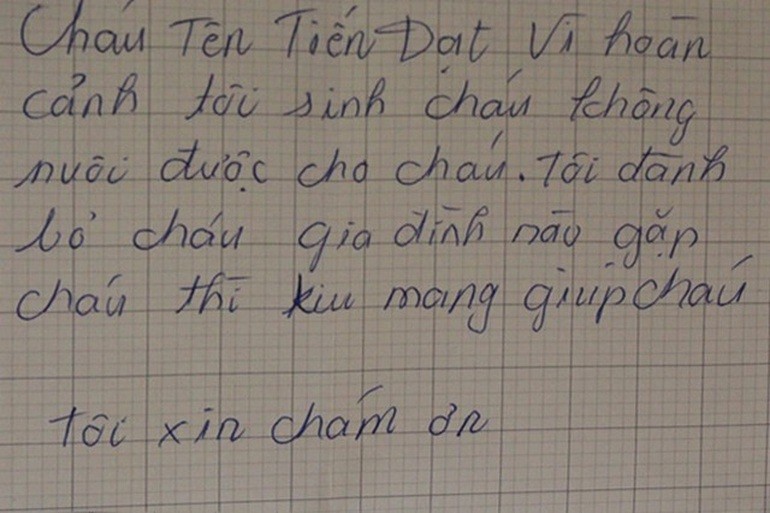 Cháu Tên Tiến Đạt Vì hoàn
cảnh tôi sinh cháu không
nuôi được cho cháu. Tôi đành
bỏ cháu gia đình nào gặp
cháu thì kiu mang giúp cháu
tôi xin chám ơn